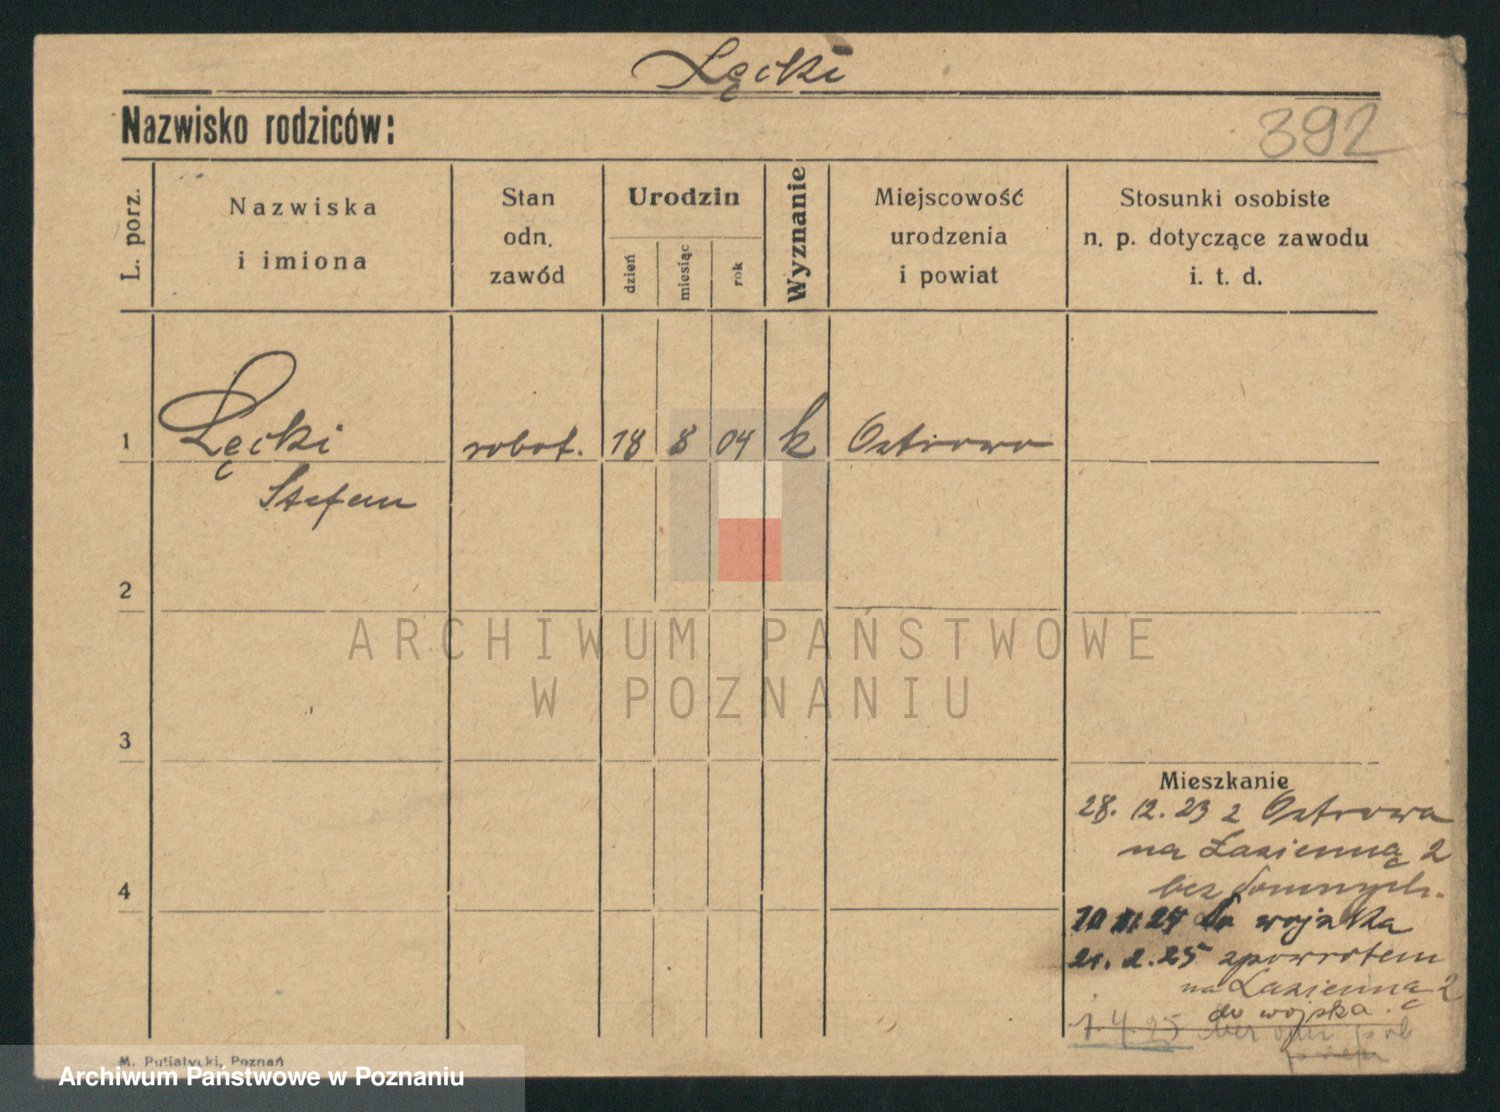 Łęcki
Nazwisko rodziców:
392
L. porz.
Nazwiska
i imiona
Stan
odn.
zawód
Urodzin
dzień
miesiąc
rok
Wyznanie
Miejscowość
urodzenia
i powiat
Stosunki osobiste
n. p. dotyczące zawodu
i. t. d.
1 Łęcki robot. 18 8 04 k Ostrowo
Stefan
2
ARCHIWUM PAŃSTWOWE
W POZNANIU
3
Mieszkanie
28. 12. 23 z Ostrowa
na Łazienną 2
bez
4
do wojska
21. 2. 25 zpowrotem
na Łazienną 2
do wojska.
1. 4. 25
M. Putiatycki, Poznań
Archiwum Państwowe w Poznaniu